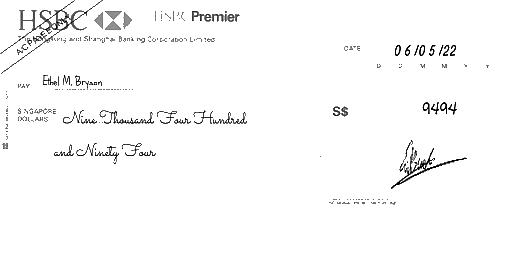 HSBC HSBC Premier
A/C PAYEE ONLY
The Hongkong and Shanghai Banking Corporation Limited
DATE 06/05/22
D D M M Y Y
PAY Ethel M. Bryson
SINGAPORE
DOLLARS
Nine Thousand Four Hundred
and Ninety Four
S$ 9494